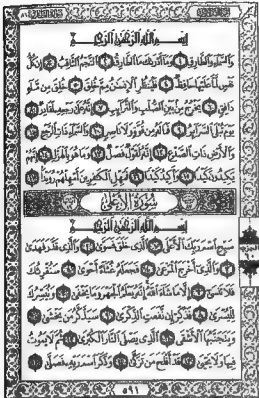 بِسْمِ اللَّهِ الرَّحْمَٰنِ الرَّحِيمِ
وَالسَّمَاءِ وَالطَّارِقِ ١ وَمَا أَدْرَاكَ مَا الطَّارِقُ ٢ النَّجْمُ الثَّاقِبُ ٣ إِن كُلُّ
نَفْسٍ لَّمَّا عَلَيْهَا حَافِظٌ ٤ فَلْيَنظُرِ الْإِنسَانُ مِمَّ خُلِقَ ٥ خُلِقَ مِن مَّاءٍ
دَافِقٍ ٦ يَخْرُجُ مِن بَيْنِ الصُّلْبِ وَالتَّرَائِبِ ٧ إِنَّهُ عَلَىٰ رَجْعِهِ لَقَادِرٌ ٨
يَوْمَ تُبْلَى السَّرَائِرُ ٩ فَمَا لَهُ مِن قُوَّةٍ وَلَا نَاصِرٍ ١٠ وَالسَّمَاءِ ذَاتِ الرَّجْعِ ١١
وَالْأَرْضِ ذَاتِ الصَّدْعِ ١٢ إِنَّهُ لَقَوْلٌ فَصْلٌ ١٣ وَمَا هُوَ بِالْهَزْلِ ١٤ إِنَّهُمْ
يَكِيدُونَ كَيْدًا ١٥ وَأَكِيدُ كَيْدًا ١٦ فَمَهِّلِ الْكَافِرِينَ أَمْهِلْهُمْ رُوَيْدًا ١٧
سُورَةُ الْأَعْلَىٰ
بِسْمِ اللَّهِ الرَّحْمَٰنِ الرَّحِيمِ
سَبِّحِ اسْمَ رَبِّكَ الْأَعْلَى ١ الَّذِي خَلَقَ فَسَوَّىٰ ٢ وَالَّذِي قَدَّرَ فَهَدَىٰ
٣ وَالَّذِي أَخْرَجَ الْمَرْعَىٰ ٤ فَجَعَلَهُ غُثَاءً أَحْوَىٰ ٥ سَنُقْرِئُكَ
فَلَا تَنسَىٰ ٦ إِلَّا مَا شَاءَ اللَّهُ إِنَّهُ يَعْلَمُ الْجَهْرَ وَمَا يَخْفَىٰ ٧ وَنُيَسِّرُكَ
لِلْيُسْرَىٰ ٨ فَذَكِّرْ إِن نَّفَعَتِ الذِّكْرَىٰ ٩ سَيَذَّكَّرُ مَن يَخْشَىٰ ١٠
وَيَتَجَنَّبُهَا الْأَشْقَى ١١ الَّذِي يَصْلَى النَّارَ الْكُبْرَىٰ ١٢ ثُمَّ لَا يَمُوتُ
فِيهَا وَلَا يَحْيَىٰ ١٣ قَدْ أَفْلَحَ مَن تَزَكَّىٰ ١٤ وَذَكَرَ اسْمَ رَبِّهِ فَصَلَّىٰ ١٥
٥٩١